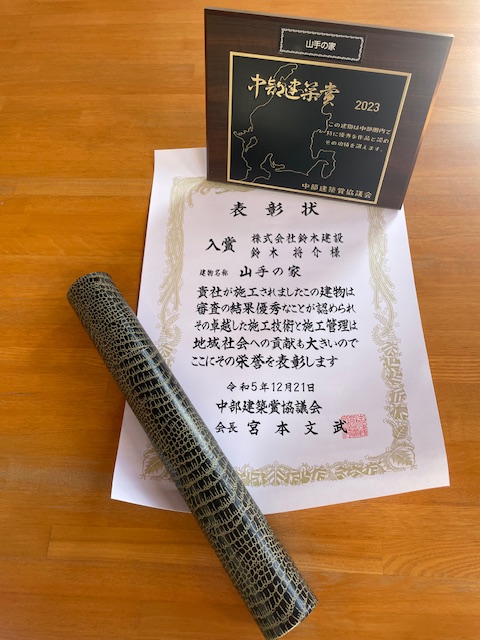 山手の家
中部建築賞
2023
この建物は中部圏内で
特に優秀な作品と認め
その功績を讃えます。
中部建築賞協議会
表彰状
入賞 株式会社鈴木建設
鈴木 将介 様
建物名称 山手の家
貴社が施工されましたこの建物は
審査の結果優秀なことが認められ
その卓越した施工技術と施工管理は
地域社会への貢献も大きいので
ここにその栄誉を表彰します
令和5年12月21日
中部建築賞協議会
会長 宮本文武